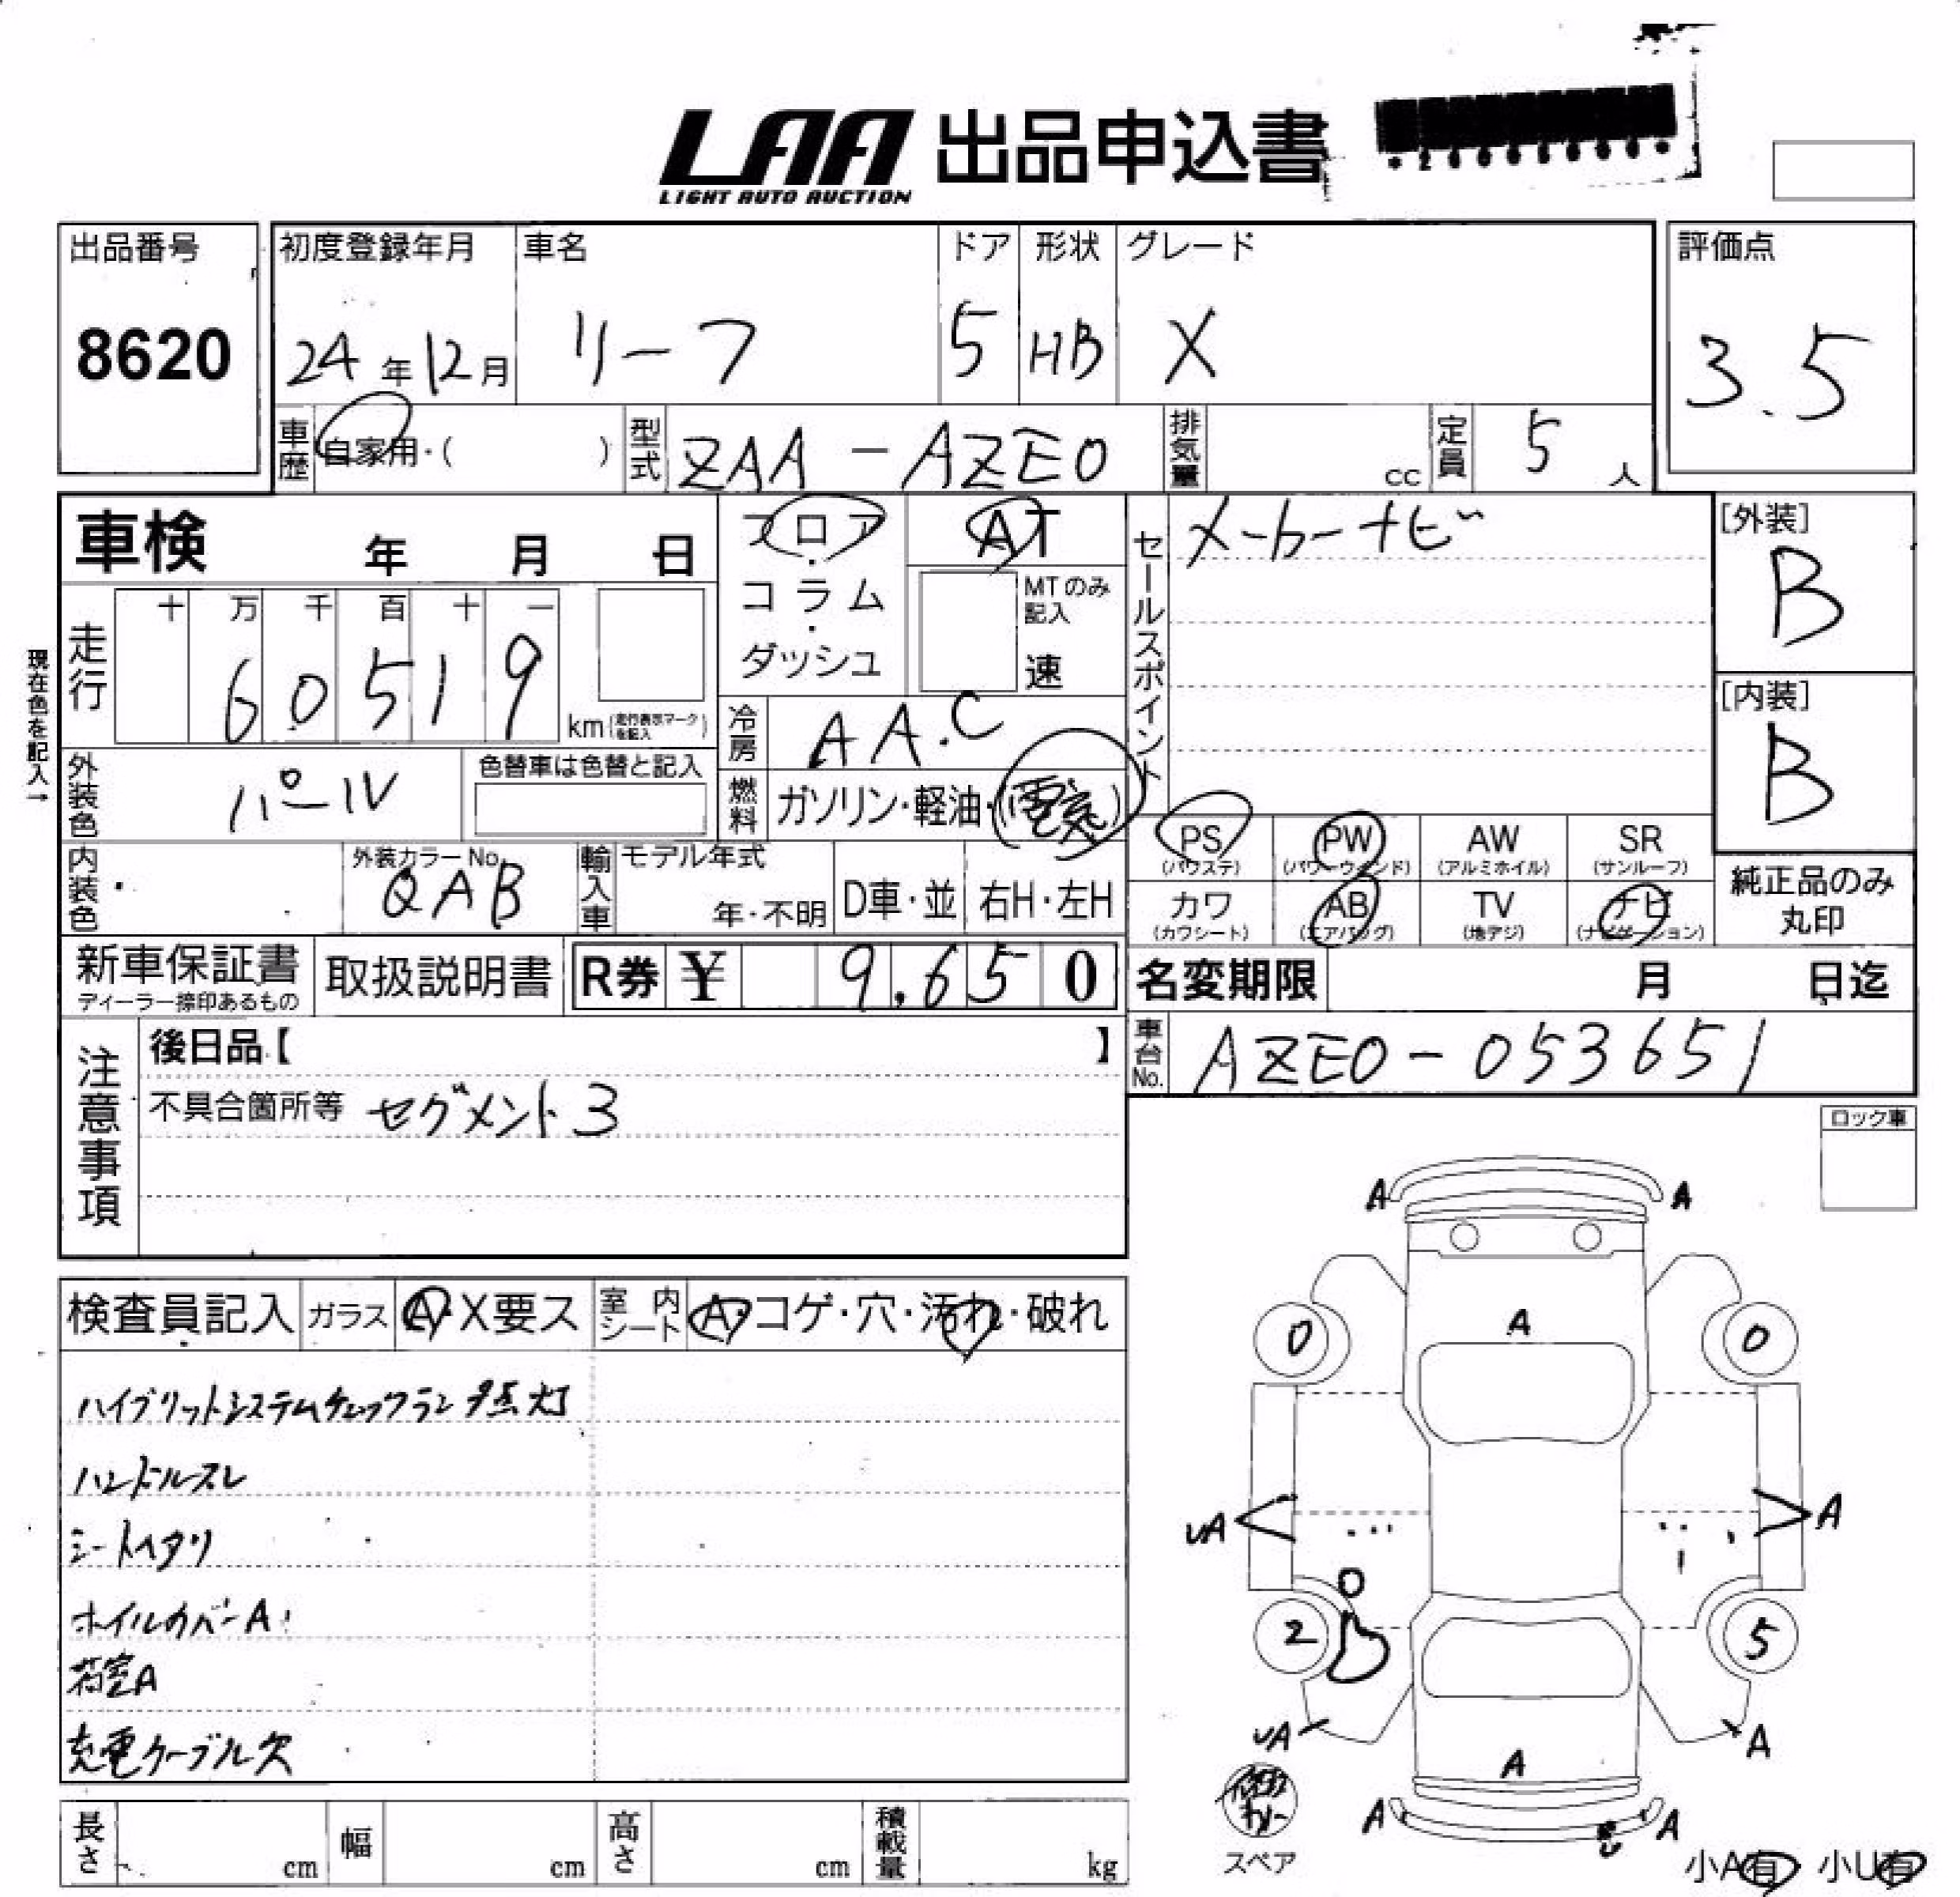 LAA 出品申込書
LIGHT AUTO AUCTION
出品番号
8620
初度登録年月
24年12月
車名
リーフ
ドア
5
形状
HB
グレード
X
評価点
3.5
車歴 自家用・( )
型式 ZAA-AZE0
排気量 cc
定員 5人
車検 年 月 日
フロア・コラム・ダッシュ
AT
MTのみ記入
速
セールスポイント
メーカーナビ
[外装]
B
[内装]
B
現在色を記入→
走行
十 万 千 百 十 一
6 0 5 1 9
km(走行表示マークを記入)
冷房 AA.C
外装色 パール
色替車は色替と記入
燃料 ガソリン・軽油・(電気)
内装色
外装カラーNo.
QAB
輸入車
モデル年式
年・不明
D車・並
右H・左H
PS
(パワステ)
PW
(パワーウインド)
AW
(アルミホイル)
SR
(サンルーフ)
カワ
(カワシート)
AB
(エアバッグ)
TV
(地デジ)
ナビ
(ナビゲーション)
純正品のみ
丸印
新車保証書
ディーラー捺印あるもの
取扱説明書
R券 ¥ 9,650
名変期限 月 日迄
車台No. AZE0-053651
注意事項
後日品【 】
不具合箇所等 セグメント3
ロック車
検査員記入
ガラス A・X要ス
室内シート A・コゲ・穴・汚れ・破れ
ハイブリットシステムチェックランプ点灯
ハンドルスレ
シートヘタリ
ホイルカバーA
荷室A
充電ケーブル欠
A A
0 A 0
UA A
0
2 5
UA A
A
A A
スペア
小A有 小U有
長さ cm
幅 cm
高さ cm
積載量 kg